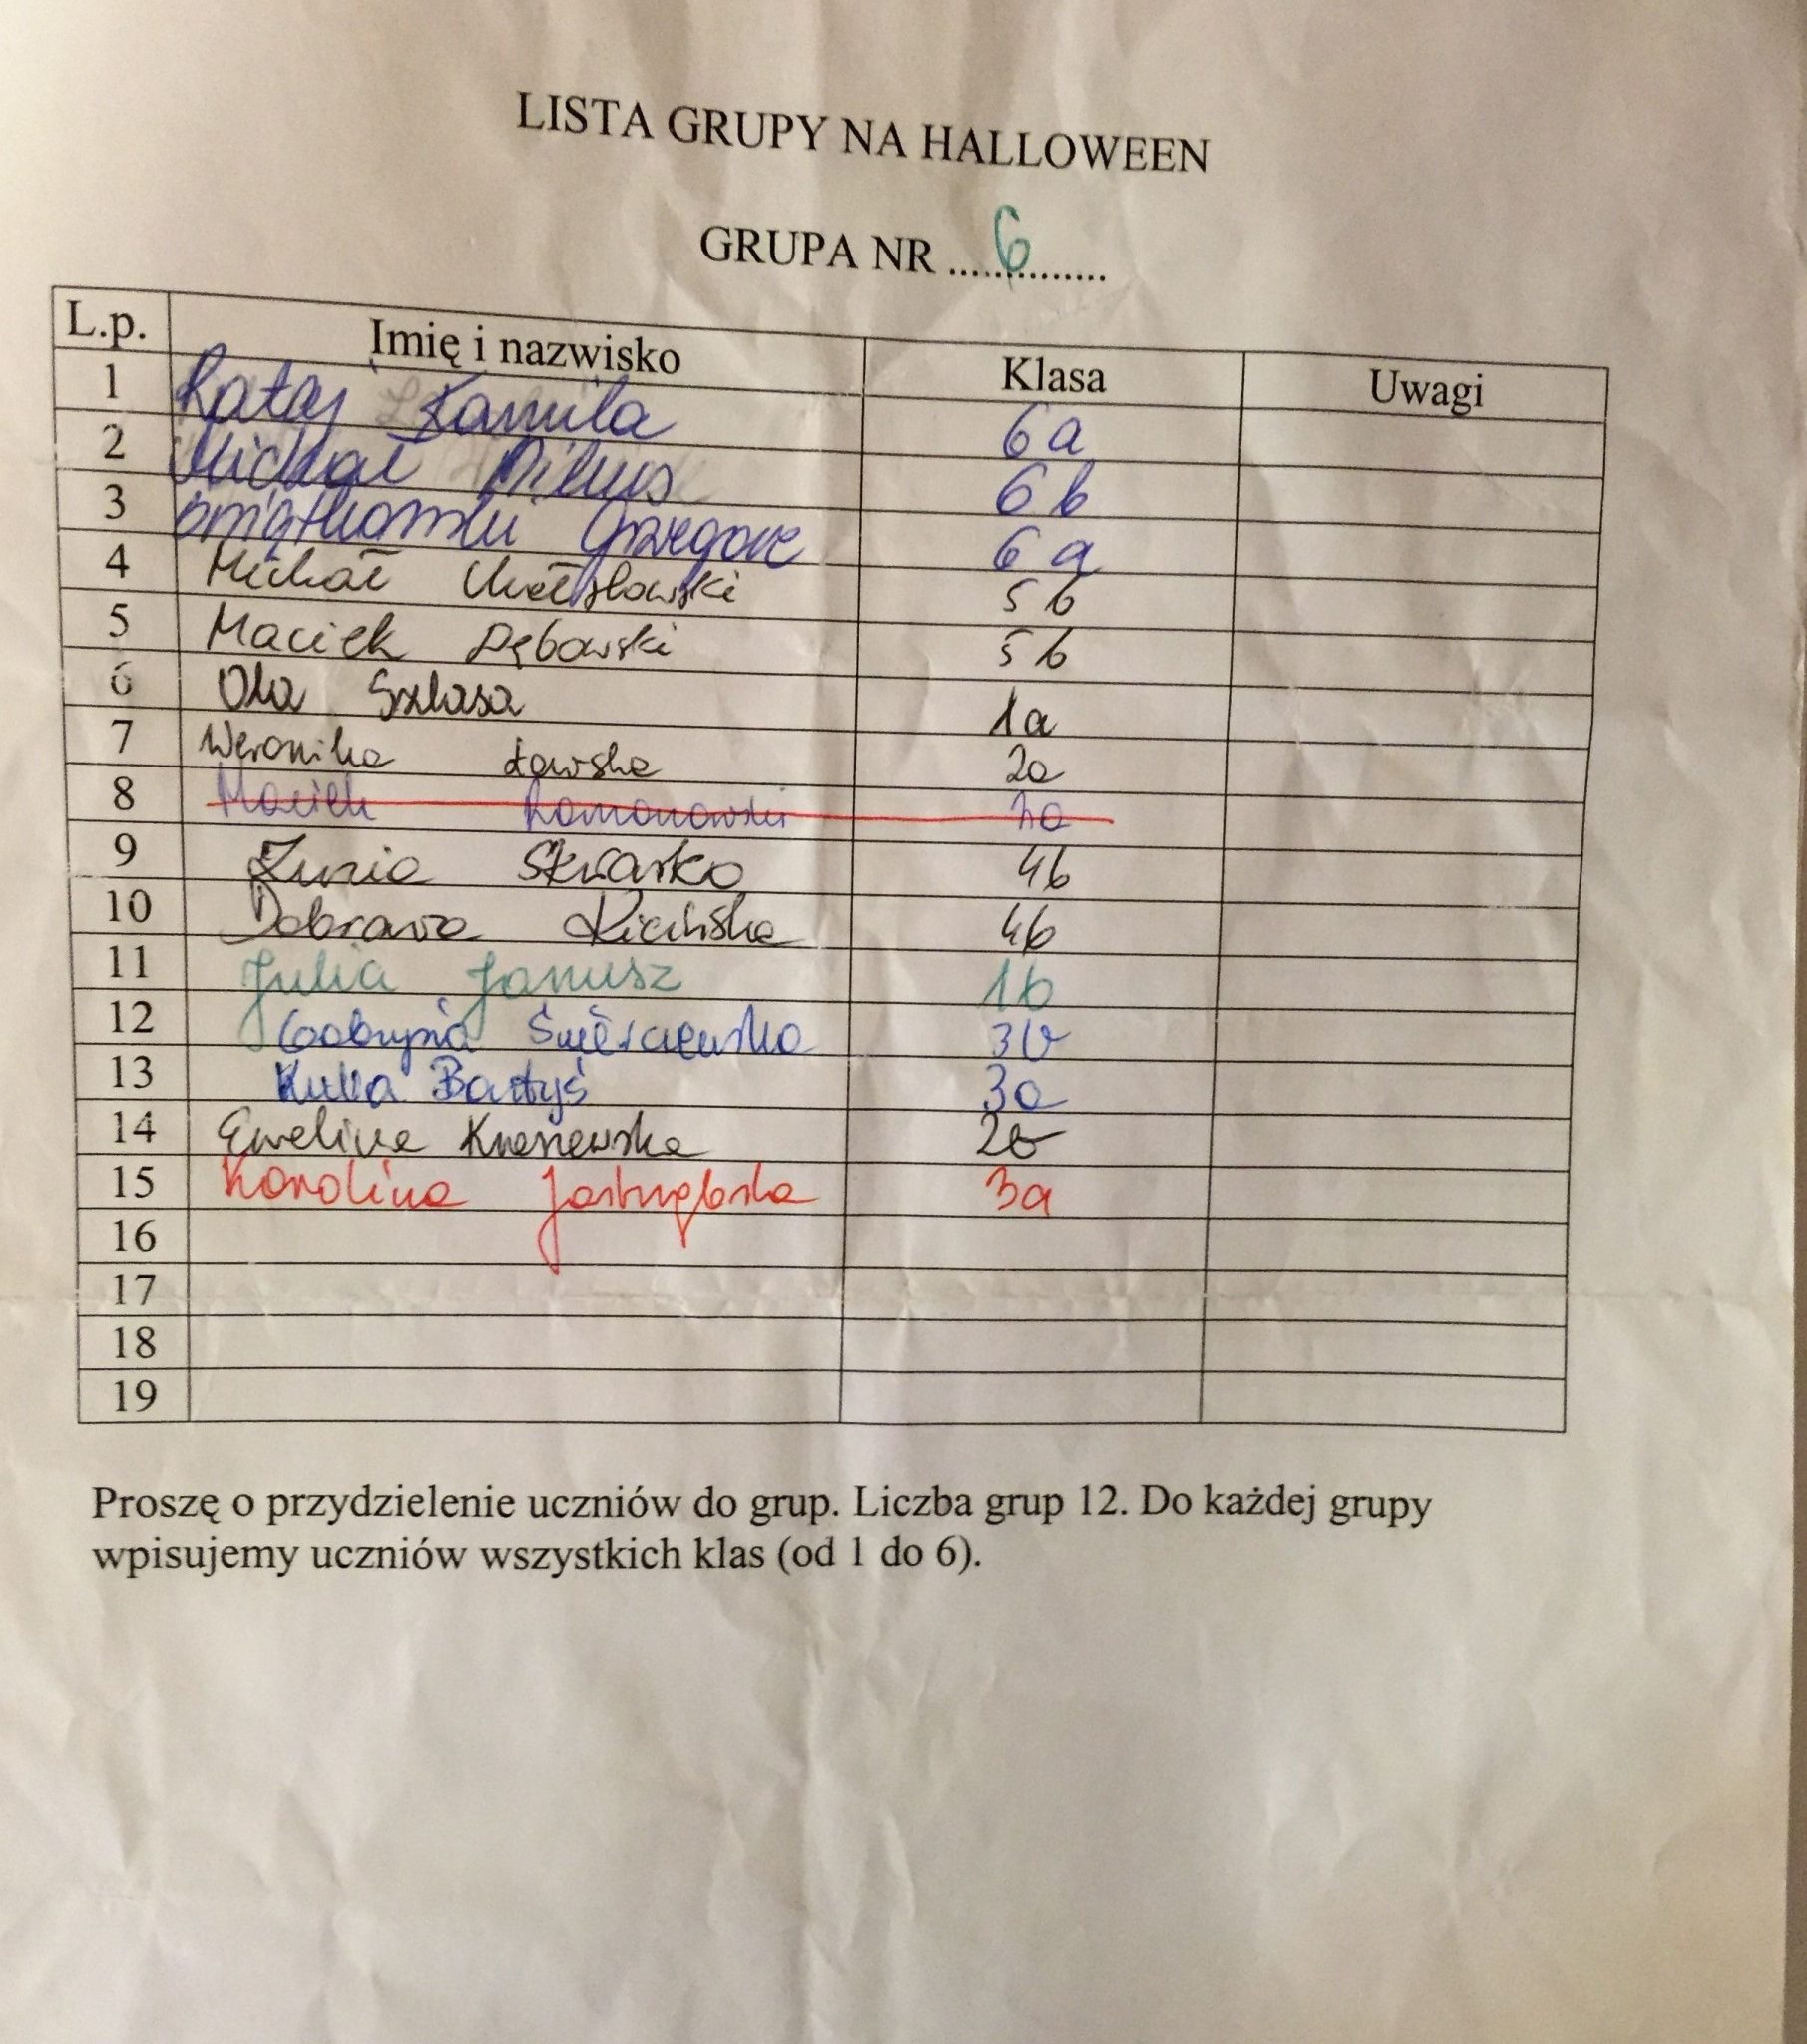 LISTA GRUPY NA HALLOWEEN
GRUPA NR .....6........
L.p. Imię i nazwisko Klasa Uwagi
1 Rataj Kamila 6a
2 Michał 6b
3 Grzegorz 6a
4 Michał 5b
5 Maciek Dębowski 5b
6 Ola Szlasa 1a
7 Weronika Ławska 2a
8 Maciek Romanowski
9 Zunia Skwarko 4b
10 Dobrawa Kicińska 4b
11 Julia Janusz 1b
12 Gabrysia Świerczewska 3b
13 Kuba Bartyś 3a
14 Ewelina 2b
15 Karolina Jastrzębska 3a
16
17
18
19
Proszę o przydzielenie uczniów do grup. Liczba grup 12. Do każdej grupy
wpisujemy uczniów wszystkich klas (od 1 do 6).